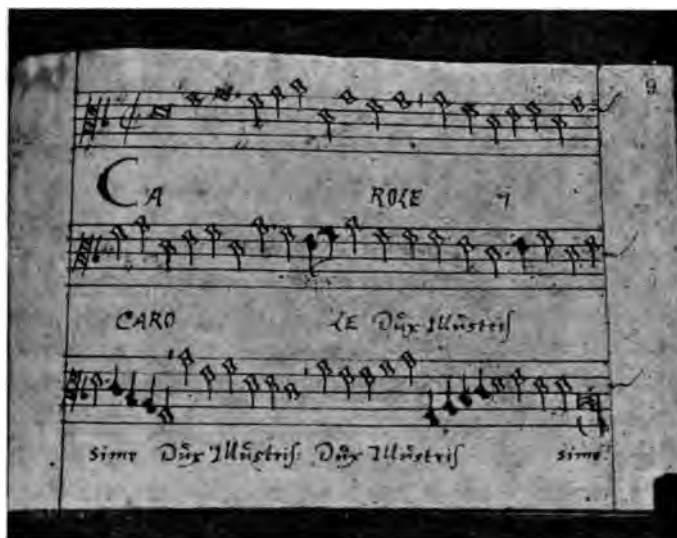 9
CA ROLE
CARO LE Dux Illustris
simo Dux Illustris: Dux Illustris simo